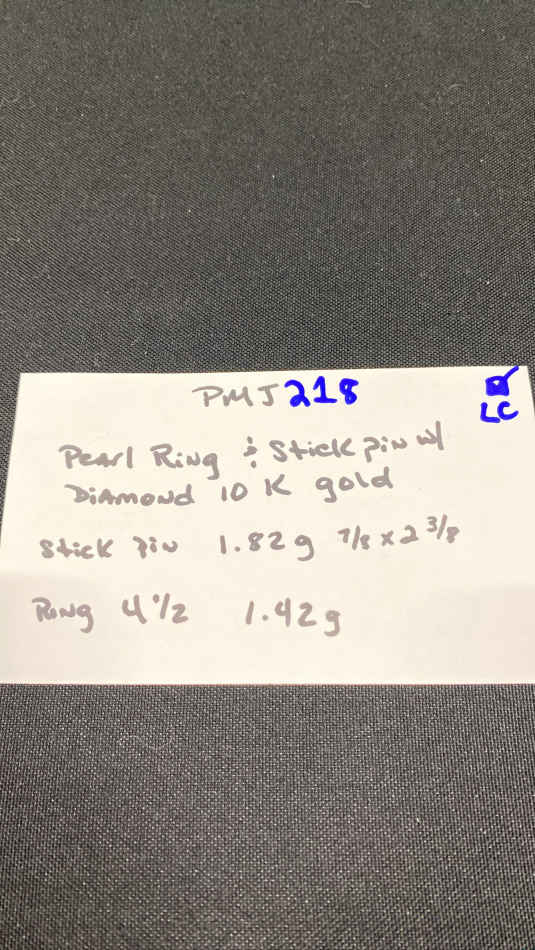 PMJ 218
LC
Pearl Ring & Stick pin w/
Diamond 10 K gold
Stick Pin 1.82g 7/8 x 2 3/8
Ring 4 1/2 1.42g